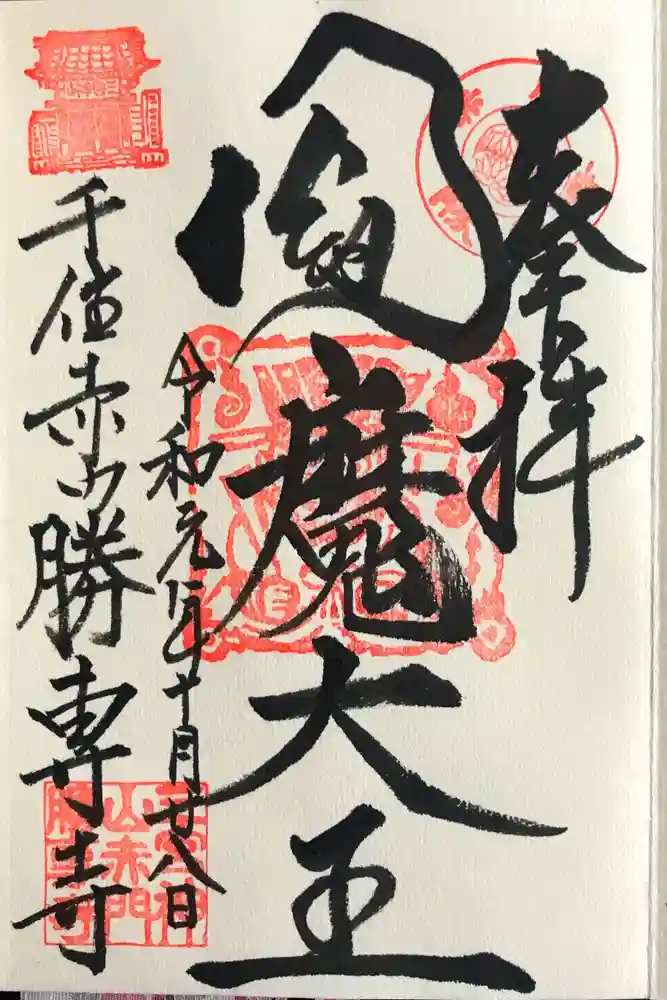 奉拝
閻魔大王
令和元年十月廿八日
千住赤門勝専寺